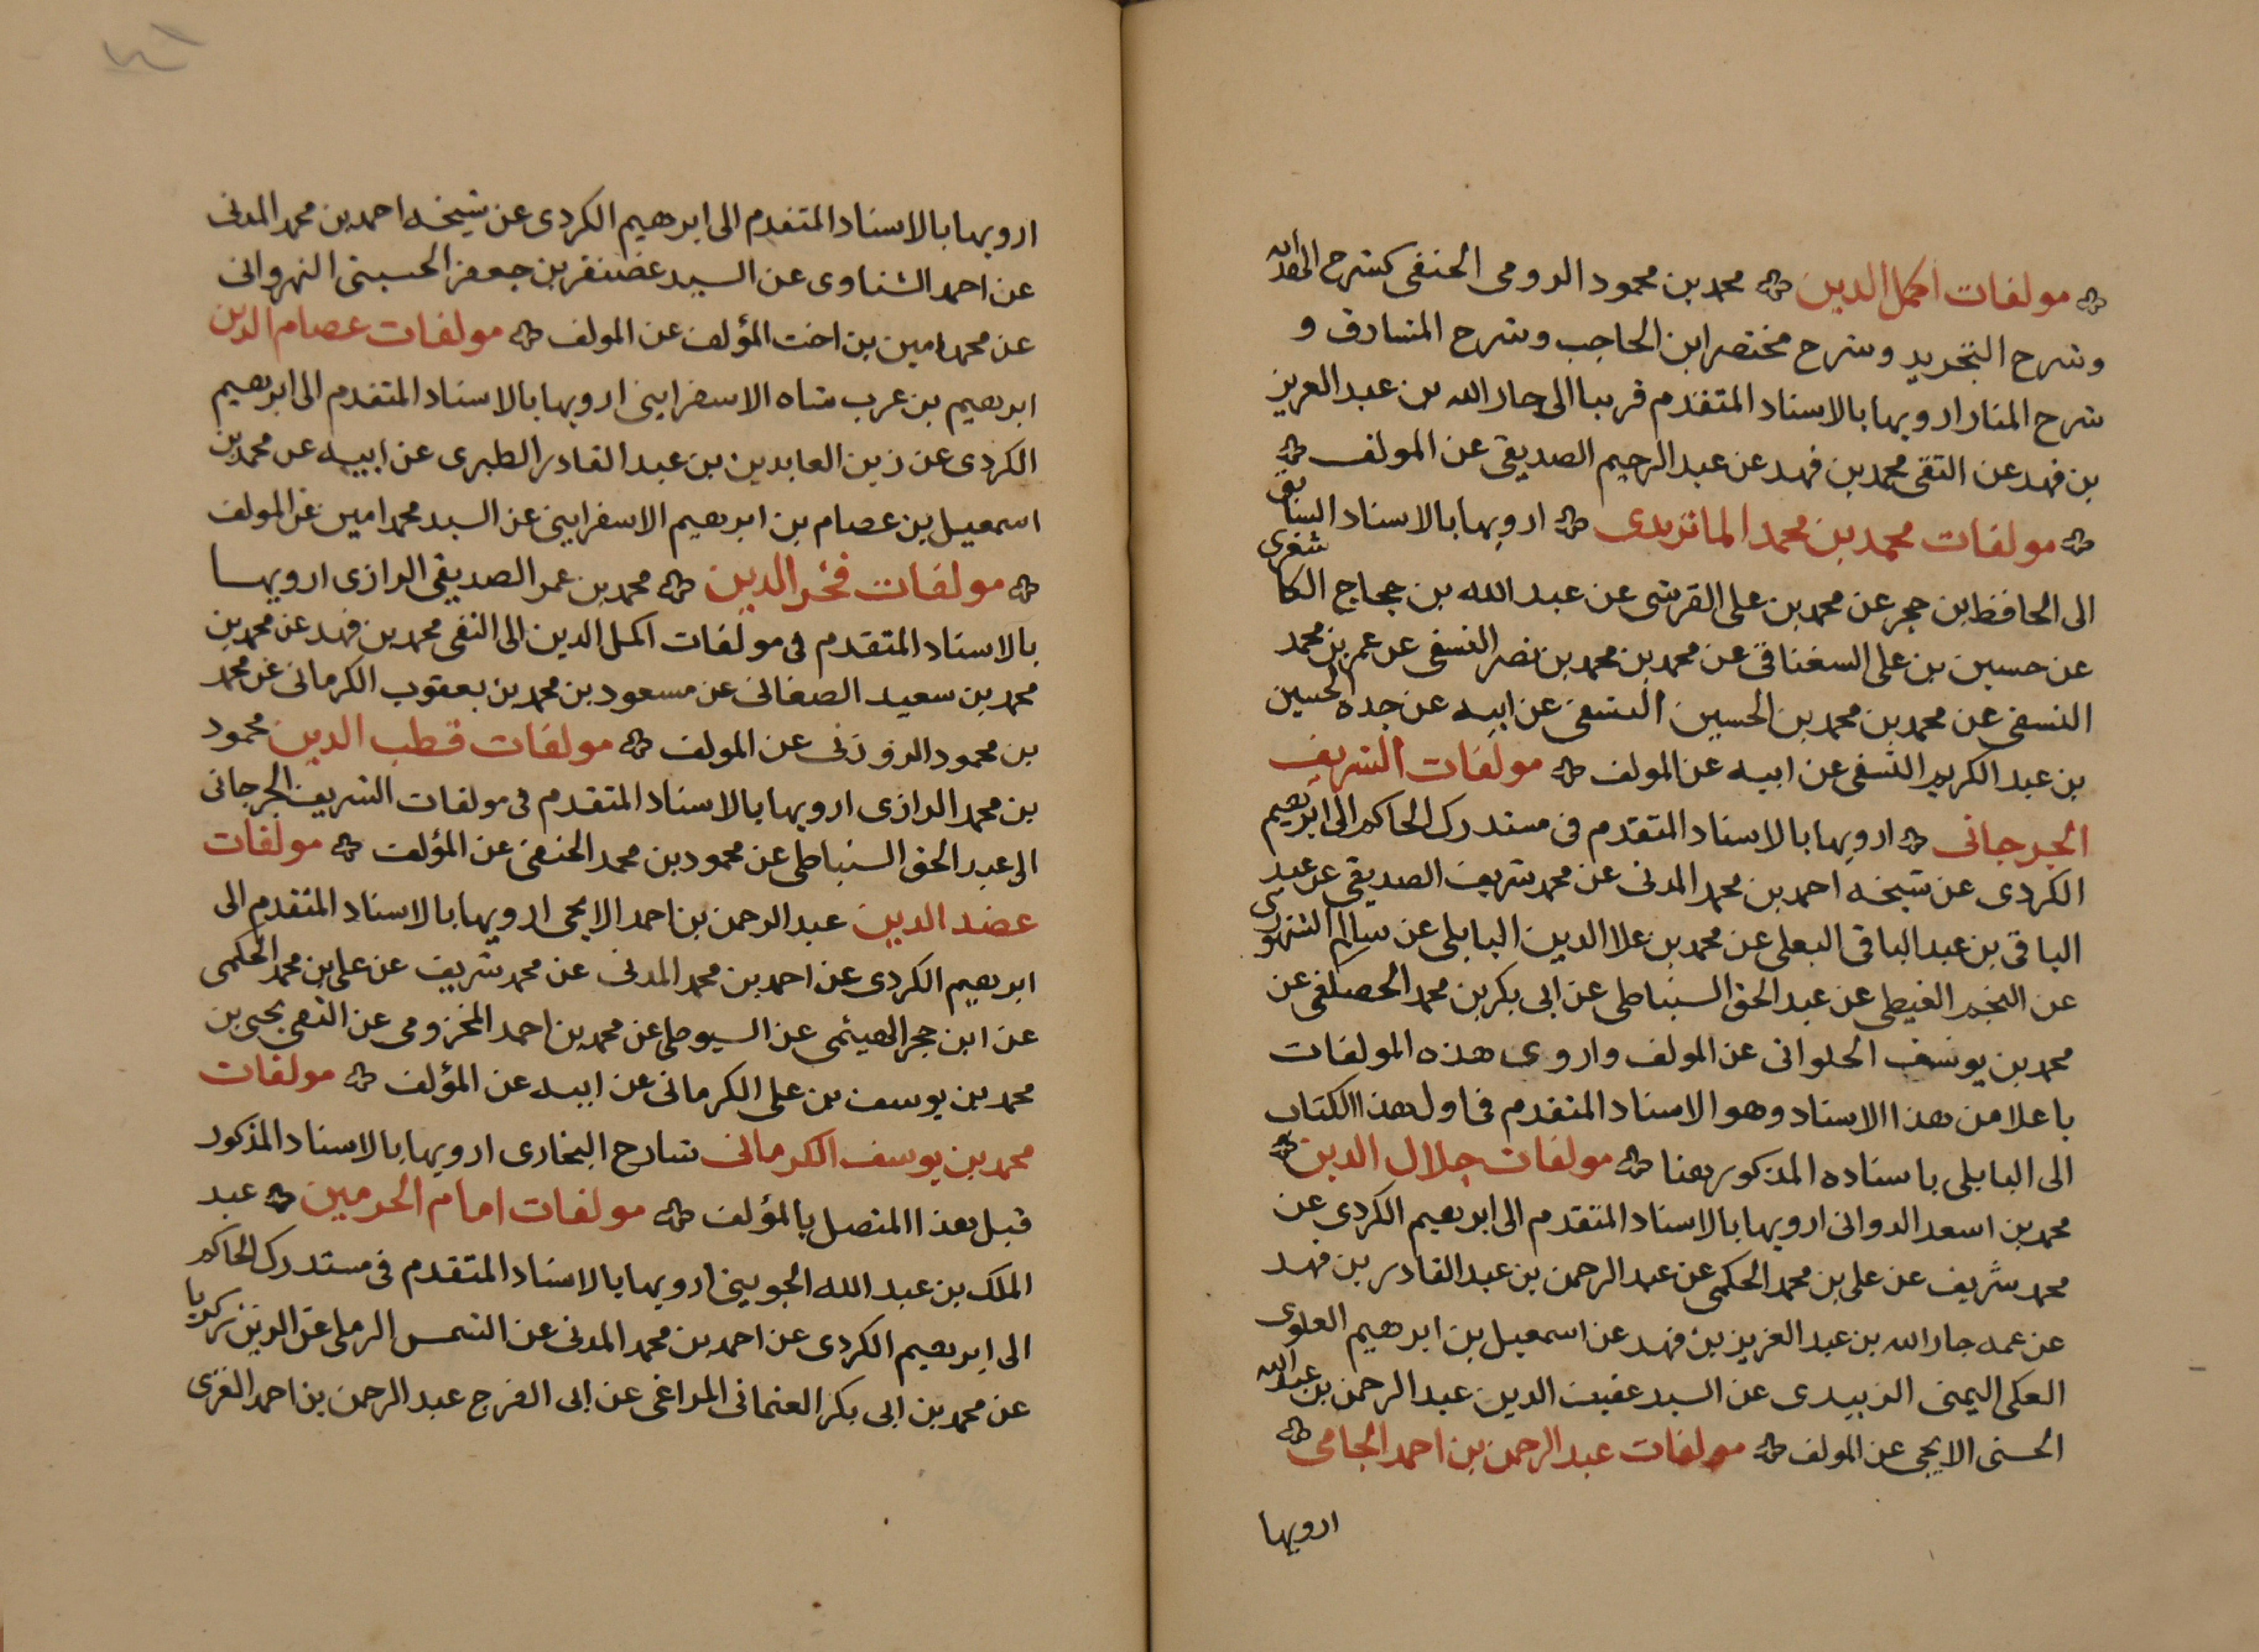 مولفات اكمل الدين محمد بن محمود الرومى الحنفى كشرح الهداية
وشرح التجريد وشرح مختصر ابن الحاجب وشرح المشارق و
شرح المنار ارويها بالاسناد المتقدم قريبا الى جار الله بن عبد العزيز
بن فهد عن التقى محمد بن فهد عن عبد الرحيم الصديقى عن المولف
مولفات محمد بن محمد الماتريدى ارويها بالاسناد السابق
الى الحافظ ابن حجر عن محمد بن على القرشى عن عبد الله بن حجاج الكاشغرى
عن حسين بن على السغناقى عن محمد بن محمد بن نصر النسفى عن عمر بن محمد
النسفى عن محمد بن محمد بن الحسين النسفى عن ابيه عن جده الحسين
بن عبد الكريم النسفى عن ابيه عن المولف مولفات الشريف
الجرجانى ارويها بالاسناد المتقدم فى مستدرك الحاكم الى ابرهيم
الكردى عن شيخه احمد بن محمد المدنى عن محمد شريف الصديقى عن عبد
الباقى بن عبد الباقى البعلى عن محمد بن علا الدين البابلى عن سالم السنهورى
عن النجم الغيطى عن عبد الحق السنباطى عن ابى بكر بن محمد الحصكفى عن
محمد بن يوسف الحلوانى عن المولف واروى هذه المولفات
باعلا من هذا الاسناد وهو الاسناد المتقدم فى اول هذا الكتاب
الى البابلى باسناده المذكور هنا مولفات جلال الدين
محمد بن اسعد الدوانى ارويها بالاسناد المتقدم الى ابرهيم الكردى عن
محمد شريف عن على بن محمد الحكمى عن عبد الرحمن بن عبد القادر بن فهد
عن عمه جار الله بن عبد العزيز بن فهد عن اسمعيل بن ابرهيم العلوى
العكى اليمنى الزبيدى عن السيد عفيف الدين عبد الرحمن بن عبد الله
الحسنى الايجى عن المولف مولفات عبد الرحمن بن احمد الجامى
ارويها
ارويها بالاسناد المتقدم الى ابرهيم الكردى عن شيخه احمد بن محمد المدنى
عن احمد الشناوى عن السيد غضنفر بن جعفر الحسينى النهروانى
عن محمد امين بن اخت المؤلف عن المولف مولفات عصام الدين
ابرهيم بن عرب شاه الاسفراينى ارويها بالاسناد المتقدم الى ابرهيم
الكردى عن زين العابدين بن عبد القادر الطبرى عن ابيه عن محمد بن
اسمعيل بن عصام بن ابرهيم الاسفراينى عن السيد محمد امين عن المولف
مولفات فخر الدين محمد بن عمر الصديقى الرازى ارويها
بالاسناد المتقدم فى مولفات اكمل الدين الى التقى محمد بن فهد عن محمد بن
محمد بن سعيد الصغانى عن مسعود بن محمد بن يعقوب الكرمانى عن محمد
بن محمود الزوزنى عن المولف مولفات قطب الدين محمود
بن محمد الرازى ارويها بالاسناد المتقدم فى مولفات الشريف الجرجانى
الى عبد الحق السنباطى عن محمود بن محمد الحنفى عن المؤلف مولفات
عضد الدين عبد الرحمن بن احمد الايجى ارويها بالاسناد المتقدم الى
ابرهيم الكردى عن احمد بن محمد المدنى عن محمد شريف عن على بن محمد الحكمى
عن ابن حجر الهيثمى عن السيوطى عن محمد بن احمد المخزومى عن التقى يحيى بن
محمد بن يوسف بن على الكرمانى عن ابيه عن المؤلف مولفات
محمد بن يوسف الكرمانى شارح البخارى ارويها بالاسناد المذكور
قبل هذا المتصل بالمؤلف مولفات امام الحرمين عبد
الملك بن عبد الله الجوينى ارويها بالاسناد المتقدم فى مستدرك الحاكم
الى ابرهيم الكردى عن احمد بن محمد المدنى عن الشمس الرملى عن الزين زكريا
عن محمد بن ابى بكر العثمانى المراغى عن ابى الفرج عبد الرحمن بن احمد الغزى